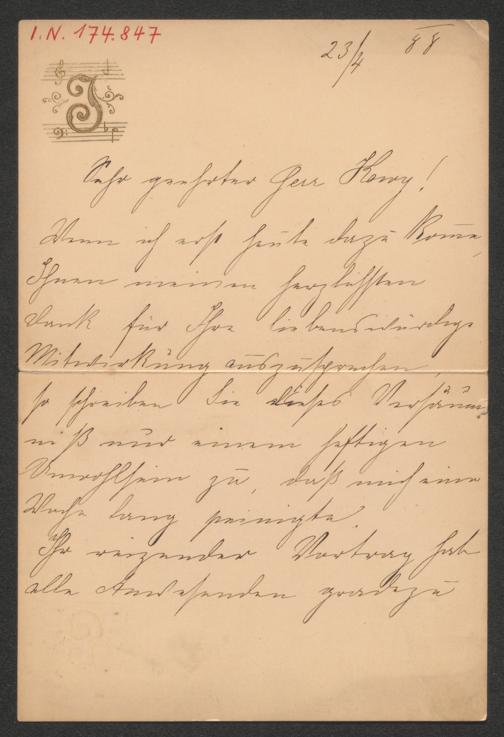 I.N. 174.847
23/4 88
J
Sehr geehrter Herr Kowy!
Wenn ich erst heute dazu komme,
Ihnen meinen herzlichsten
Dank für Ihre liebenswürdige
Mitwirkung auszusprechen,
so schreiben Sie dieses Versäum-
niß nur einem heftigen
Unwohlsein zu, daß mich eine
Woche lang peinigte.
Ihr reizender Vortrag hat
alle Anwesenden gradezu